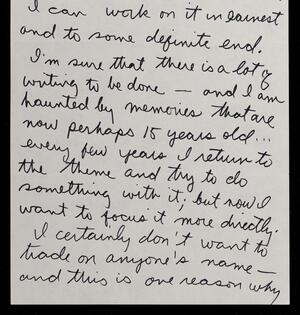 I can work on it in earnest
and to some definite end.
I'm sure that there is a lot of
writing to be done — and I am
haunted by memories that are
now perhaps 15 years old...
every few years I return to
the theme and try to do
something with it, but now I
want to focus it more directly.
I certainly don't want to
trade on anyone's name —
and this is one reason why